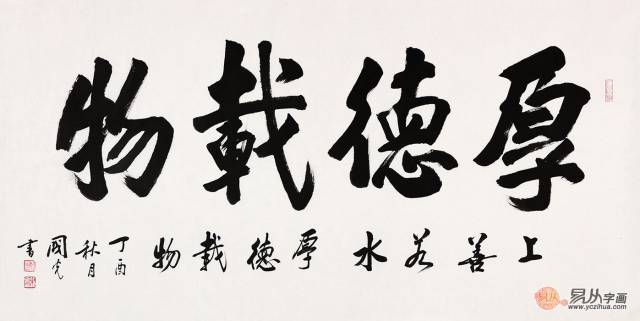 厚德載物
上善若水 厚德載物
丁酉
秋月
國光
書
易从字画
www.yczihua.com